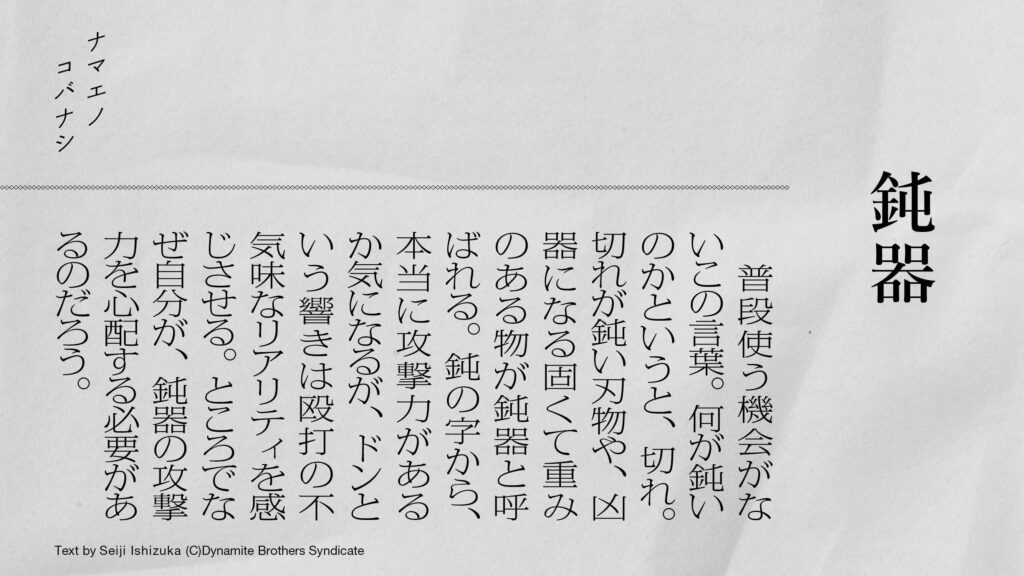 鈍器
普段使う機会がな
いこの言葉。何が鈍い
のかというと、切れ。
切れが鈍い刃物や、凶
器になる固くて重み
のある物が鈍器と呼
ばれる。鈍の字から、
本当に攻撃力がある
か気になるが、ドンと
いう響きは殴打の不
気味なリアリティを感
じさせる。ところでな
ぜ自分が、鈍器の攻撃
力を心配する必要があ
るのだろう。
ナマエノ
コバナシ
Text by Seiji Ishizuka (C)Dynamite Brothers Syndicate